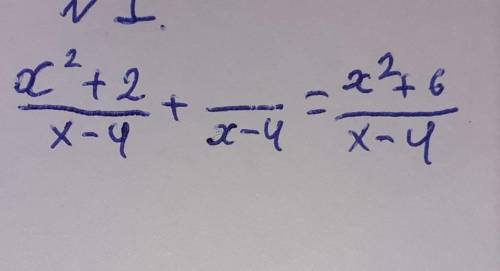 N 1.
x² + 2 / x - 4 + / x - 4 = x² + 6 / x - 4